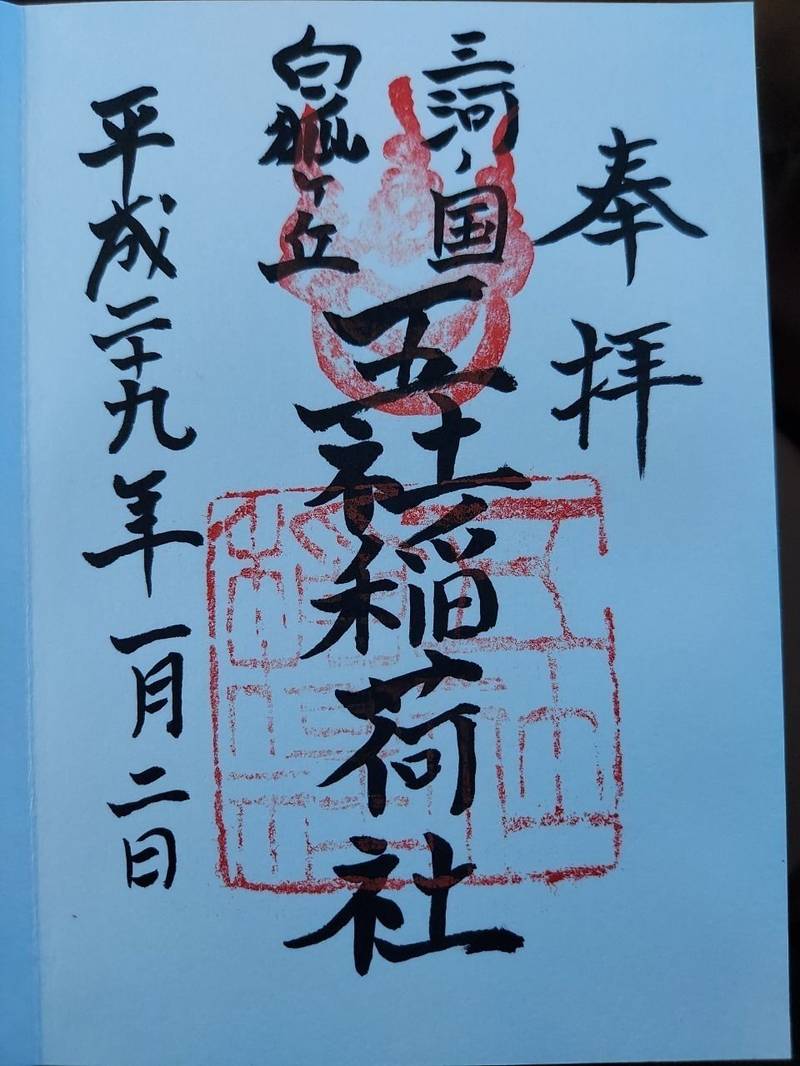 奉拝
三河ノ国
白狐ヶ丘
五社稲荷社
平成二十九年一月二日